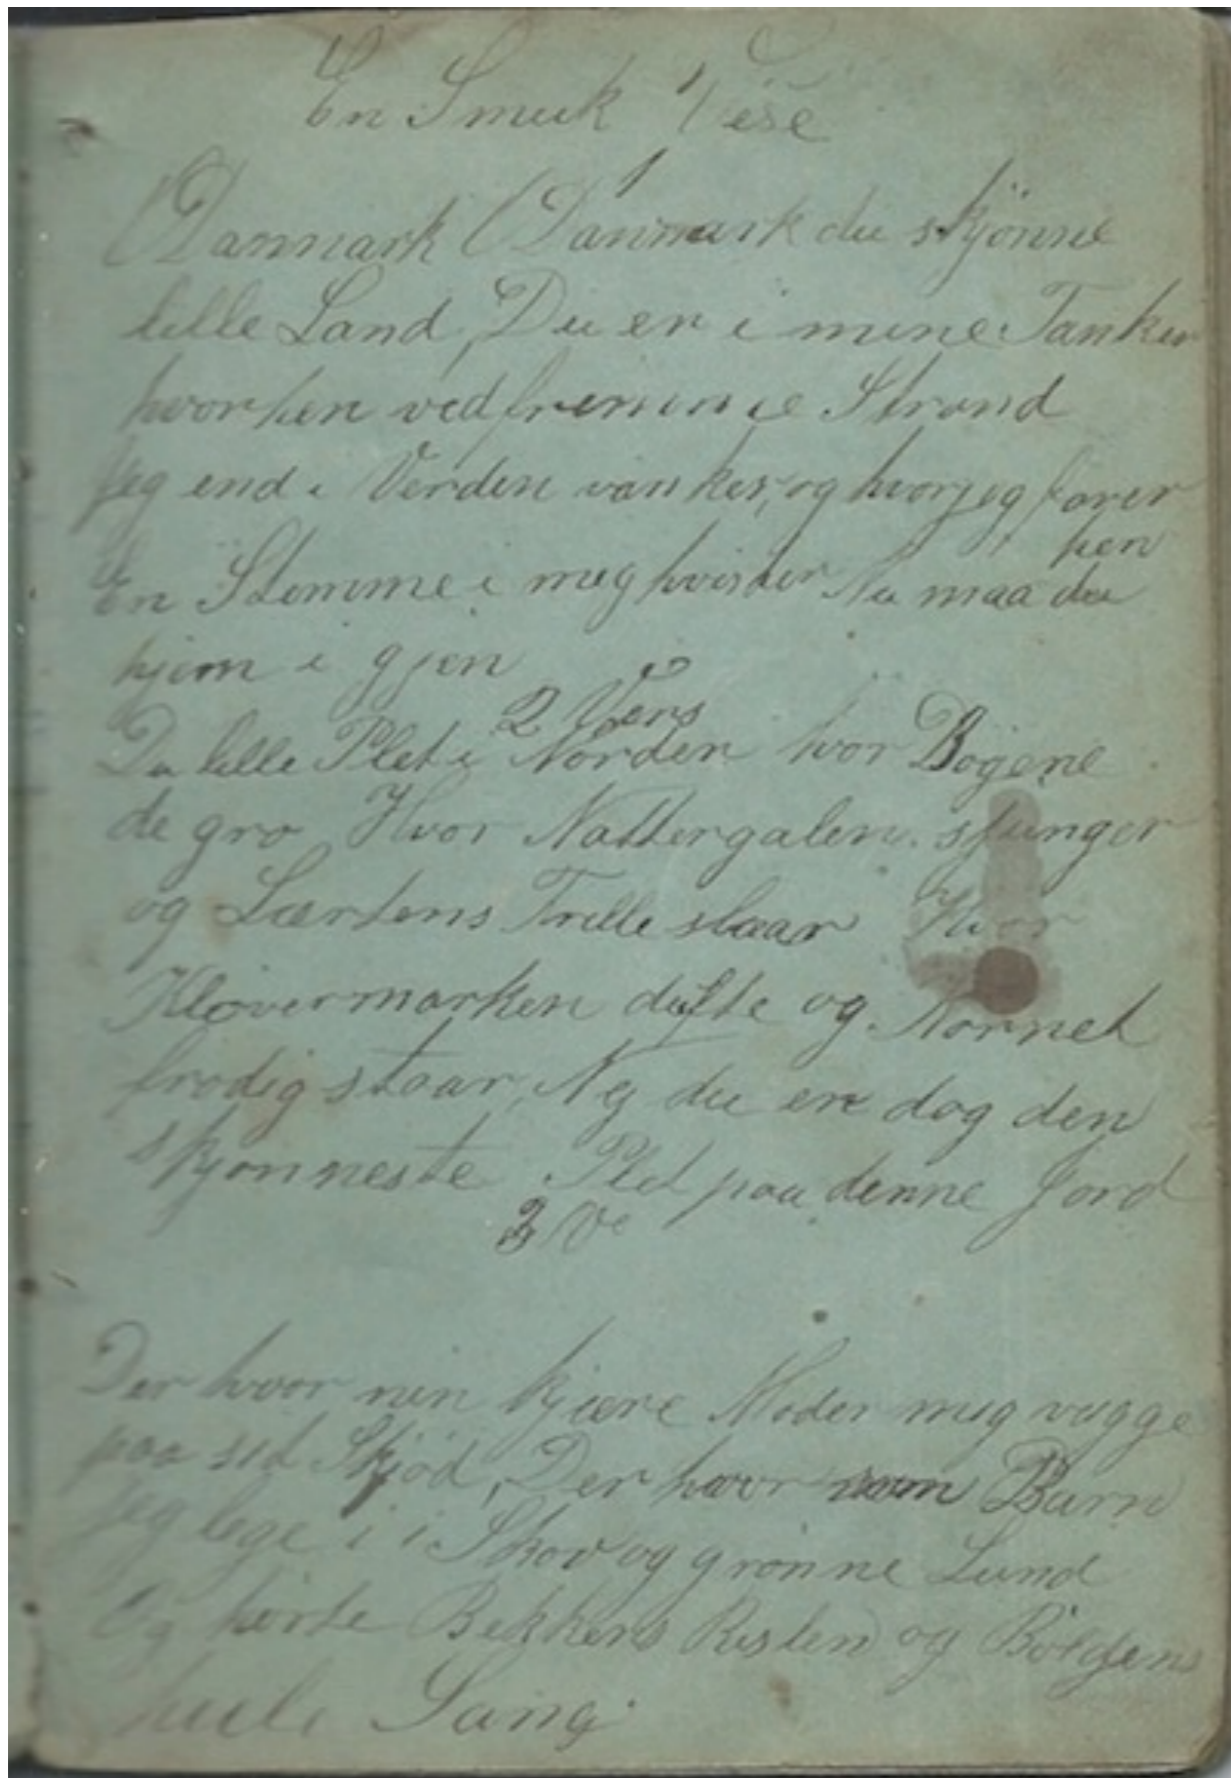 En Smuk Vise
1
Danmark Danmark du skjönne
lille Land, Du er i mine Tanker
hvorhen ved fremme Strand
jeg end i Verden vanker, og hvor jeg farer
hen
En Stemme i mig hvisker Nu maa du
hjem i gjen
2 Vers
Du lille Plet i Norden hvor Bøgene
de gro Hvor Nattergalen sjunger
og Lærkens Trille slaar Hvor
Kløvermarken dufte og Kornet
frodig staar, Nej du ere dog den
skjønneste Plet paa denne Jord
3 Ve
Der hvor min kjære Moder mig vugge
paa sid Skjød, Der hvor som Barn
jeg lege i i Skov og grønne Lund
Og hørte Bekkens Rislen og Bølgens
Sang